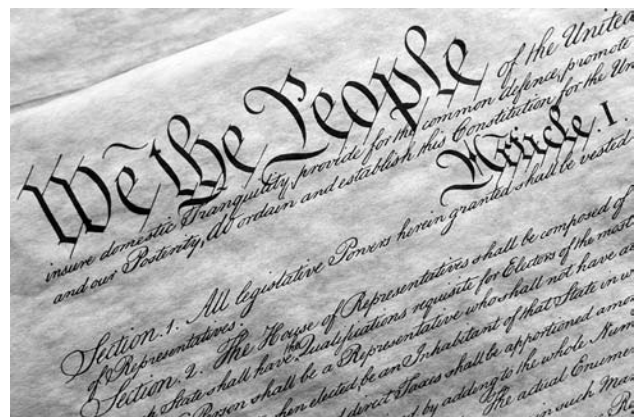 We the People of the United
insure domestic Tranquility, provide for the common defence, promote
and our Posterity, do ordain and establish this Constitution for the Un
Article. I.
Section. 1. All legislative Powers herein granted shall be vested
of Representatives.
Section. 2. The House of Representatives shall be composed of
State shall have the Qualifications requisite for Electors of the most
Person shall be a Representative who shall not have a
when elected, be an Inhabitant of that State in w
direct Taxes shall be apportioned amo
by adding to the whole Num
The actual Enume
in such Ma